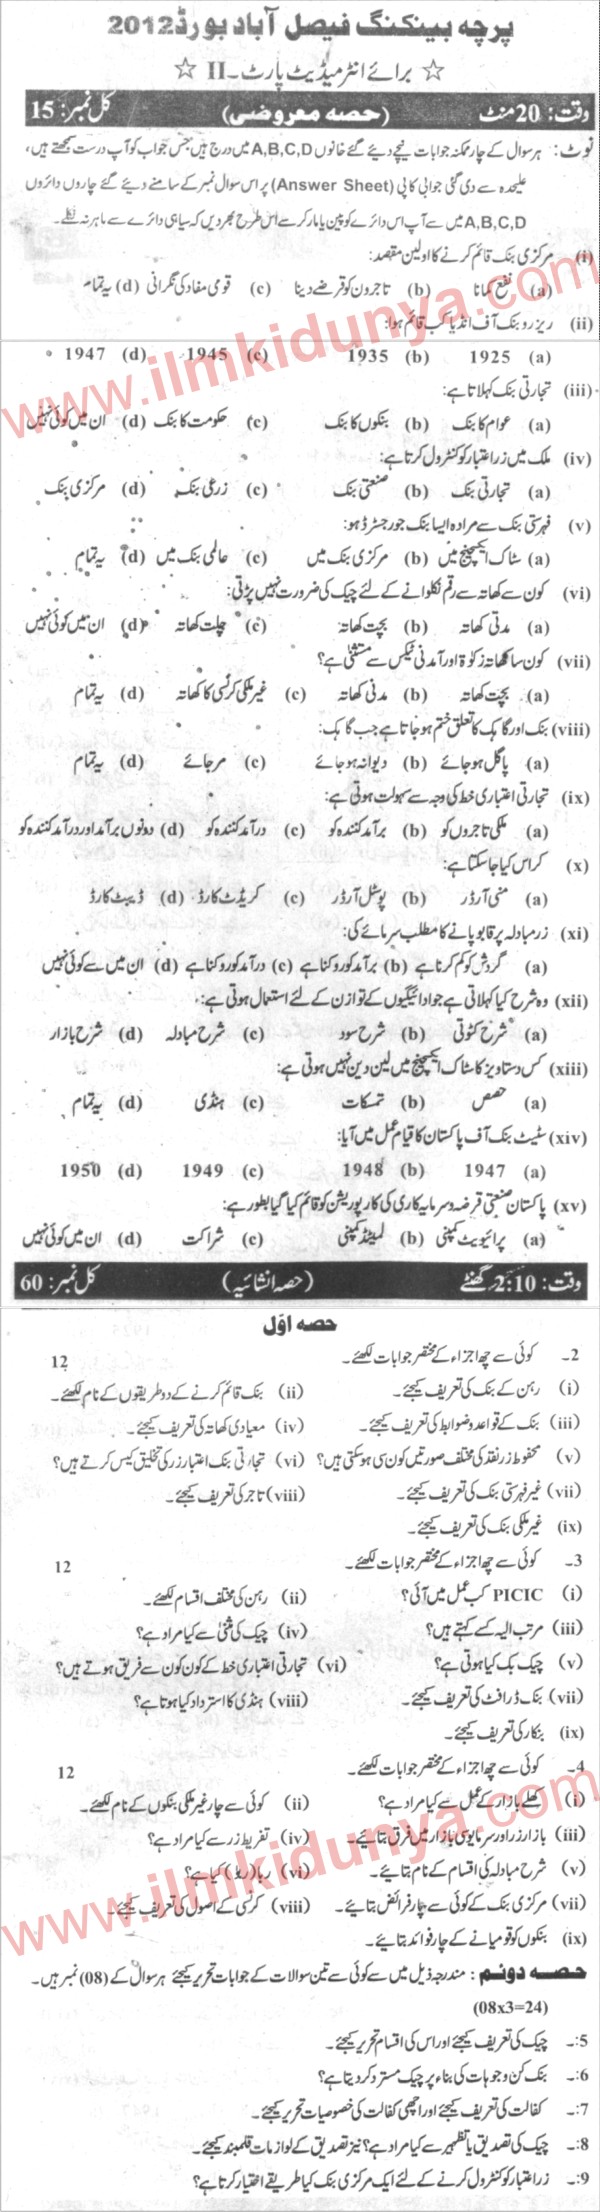 پرچہ بینکنگ فیصل آباد بورڈ 2012
☆ برائے انٹرمیڈیٹ پارٹ۔ II ☆
وقت: 20 منٹ (حصہ معروضی) کل نمبر: 15
نوٹ: ہر سوال کے چار ممکنہ جوابات نیچے دیئے گئے خانوں A,B,C,D میں درج ہیں جس جواب کو آپ درست سمجھتے ہیں،
علیحدہ سے دی گئی جوابی کاپی (Answer Sheet) پر اس سوال نمبر کے سامنے دیئے گئے چاروں دائروں
A,B,C,D میں سے آپ اس دائرے کو پین یا مارکر سے اس طرح بھر دیں کہ سیاہی دائرے سے باہر نہ نکلے۔
(i) مرکزی بنک قائم کرنے کا اولین مقصد:
(a) نفع کمانا (b) تاجرون کو قرضے دینا (c) قومی مفاد کی نگرانی (d) یہ تمام
(ii) ریزرو بنک آف انڈیا کب قائم ہوا:
(a) 1925 (b) 1935 (c) 1945 (d) 1947
(iii) تجارتی بنک کہلاتا ہے:
(a) عوام کا بنک (b) بنکوں کا بنک (c) حکومت کا بنک (d) ان میں کوئی نہیں
(iv) ملک میں زر اعتبار کو کنٹرول کرتا ہے:
(a) تجارتی بنک (b) صنعتی بنک (c) زرعی بنک (d) مرکزی بنک
(v) فہرستی بنک سے مراد ہ ایسا بنک جو رجسٹرڈ ہو:
(a) سٹاک ایکسچینج میں (b) مرکزی بنک میں (c) عالمی بنک میں (d) یہ تمام
(vi) کون سے کھاتہ سے رقم نکلوانے کے لئے چیک کی ضرورت نہیں پڑتی:
(a) مدتی کھاتہ (b) بچت کھاتہ (c) چلت کھاتہ (d) ان میں کوئی نہیں
(vii) کون سا کھاتہ زکوٰۃ اور آمدنی ٹیکس سے مستثنیٰ ہے؟
(a) بچت کھاتہ (b) مدتی کھاتہ (c) غیر ملکی کرنسی کا کھاتہ (d) یہ تمام
(viii) بنک اور گاہک کا تعلق ختم ہو جاتا ہے جب گاہک:
(a) پاگل ہو جائے (b) دیوانہ ہو جائے (c) مر جائے (d) یہ تمام
(ix) تجارتی اعتباری خط کی وجہ سے سہولت ہوتی ہے:
(a) ملکی تاجروں کو (b) برآمد کنندہ کو (c) درآمد کنندہ کو (d) دونوں برآمد اور درآمد کنندہ کو
(x) کراس کیا جا سکتا ہے:
(a) منی آرڈر (b) پوسٹل آرڈر (c) کریڈٹ کارڈ (d) ڈیبٹ کارڈ
(xi) زرمبادلہ پر قابو پانے کا مطلب سرمائے کی:
(a) گردش کو کم کرنا ہے (b) برآمد کو روکنا ہے (c) درآمد کو روکنا ہے (d) ان میں سے کوئی نہیں
(xii) وہ شرح کیا کہلاتی ہے جو ادائیگیوں کے توازن کے لئے استعمال ہوتی ہے:
(a) شرح کٹوتی (b) شرح سود (c) شرح مبادلہ (d) شرح بازار
(xiii) کس دستاویز کا سٹاک ایکسچینج میں لین دین نہیں ہوتی ہے:
(a) حصص (b) تمسکات (c) ہنڈی (d) یہ تمام
(xiv) سٹیٹ بنک آف پاکستان کا قیام عمل میں آیا:
(a) 1947 (b) 1948 (c) 1949 (d) 1950
(xv) پاکستان صنعتی قرضہ و سرمایہ کاری کی کارپوریشن کو قائم کیا گیا بطور ہے:
(a) پرائیویٹ کمپنی (b) لمیٹڈ کمپنی (c) شراکت (d) ان میں کوئی نہیں
وقت: 2:10 گھنٹے (حصہ انشائیہ) کل نمبر: 60
حصہ اوّل
2۔ کوئی سے چھ اجزاء کے مختصر جوابات لکھئے۔ 12
(i) رہن کے بنک کی تعریف کیجئے۔ (ii) بنک قائم کرنے کے دو طریقوں کے نام لکھئے۔
(iii) بنک کے قواعد و ضوابط کی تعریف کیجئے۔ (iv) میعادی کھاتہ کی تعریف کیجئے۔
(v) محفوظ زر نقد کی مختلف صورتیں کون سی ہو سکتی ہیں؟ (vi) تجارتی بنک اعتبار زر کی تخلیق کیس کرتے ہیں؟
(vii) غیر فہرستی بنک کی تعریف کیجئے۔ (viii) تاجر کی تعریف کیجئے۔
(ix) غیر ملکی بنک کی تعریف کیجئے۔
3۔ کوئی سے چھ اجزاء کے مختصر جوابات لکھئے۔ 12
(i) PICIC کب عمل میں آئی؟ (ii) رہن کی مختلف اقسام لکھئے۔
(iii) مرتب الیہ کسے کہتے ہیں؟ (iv) چیک کی مثنیٰ سے کیا مراد ہے؟
(v) چیک بک کیا ہوتی ہے؟ (vi) تجارتی اعتباری خط کے کون کون سے فریق ہوتے ہیں؟
(vii) بنک ڈرافٹ کی تعریف کیجئے۔ (viii) ہنڈی کا استرداد کیا ہوتا ہے؟
(ix) بنکار کی تعریف کیجئے۔
4۔ کوئی سے چھ اجزاء کے مختصر جوابات لکھئے۔ 12
(i) کھلے بازار کے عمل سے کیا مراد ہے؟ (ii) کوئی سے چار غیر ملکی بنکوں کے نام لکھئے۔
(iii) بازار زر اور سرمایوسی بازار میں فرق بتائیے۔ (iv) تفریط زر سے کیا مراد ہے؟
(v) شرح مبادلہ کی اقسام کے نام بتائیے۔ (vi) ربا (ربوٰ) کیا ہے؟
(vii) مرکزی بنک کے کوئی سے چار فرائض بتائیے۔ (viii) کرنسی کے اصول کی تعریف کیجئے۔
(ix) بنکوں کو قومیانے کے چار فوائد بتائیے۔
حصہ دوئم : مندرجہ ذیل میں سے کوئی سے تین سوالات کے جوابات تحریر کیجئے ہر سوال کے (08) نمبر ہیں۔
(08x3=24)
5:۔ چیک کی تعریف کیجئے اور اس کی اقسام تحریر کیجئے۔
6:۔ بنک کن وجوہات کی بناء پر چیک مسترد کر دیتا ہے؟
7:۔ کفالت کی تعریف کیجئے اور اچھی کفالت کی خصوصیات تحریر کیجئے۔
8:۔ چیک کی تصدیق یا تظہیر سے کیا مراد ہے؟ نیز تصدیق کے لوازمات قلمبند کیجئے۔
9:۔ زر اعتبار کو کنٹرول کرنے کے لئے ایک مرکزی بنک کیا طریقے اختیار کرتا ہے؟
www.ilmkidunya.com
www.ilmkidunya.com